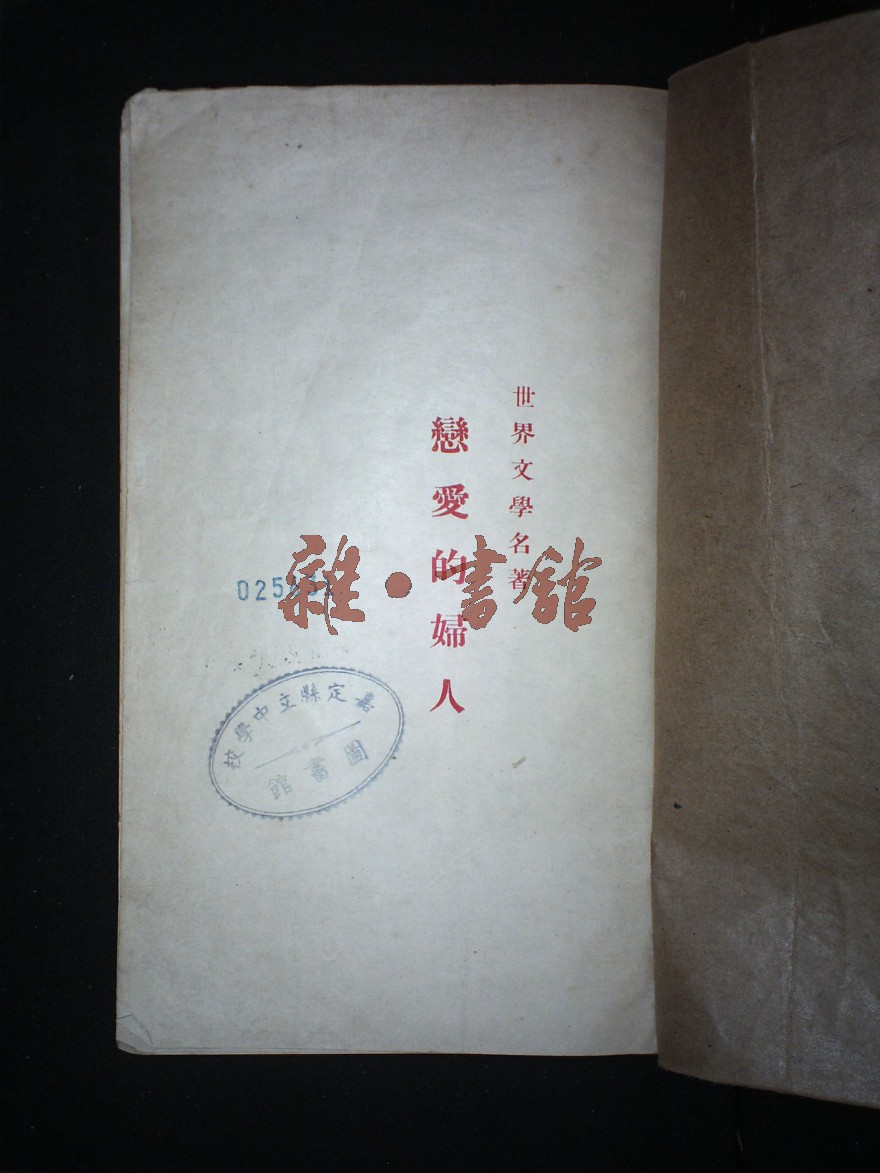 世界文學名著
戀愛的婦人
雜·書館
嘉定縣立中學校
圖書館